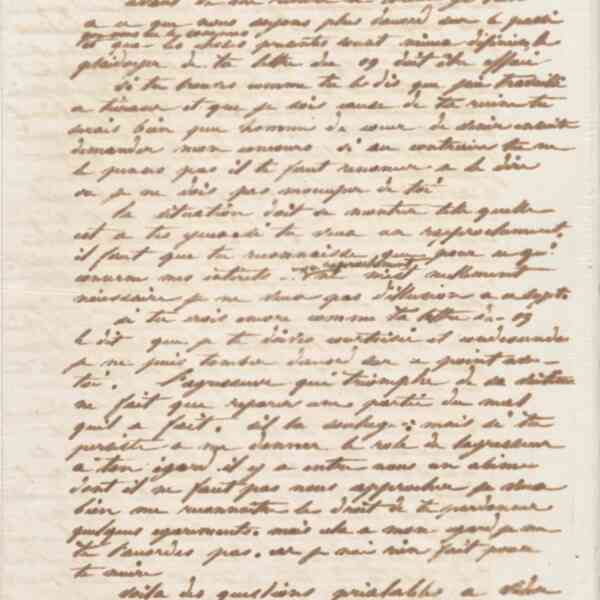 a ce que nous soyons plus d'accord sur le passé
que les choses puantes sont mieux définies, le
plaidoyer de ta lettre du 09 doit être effacé
Si tu trouves comme tu le dis que j'ai travaillé
a et que je sois cause de ta ruine tu
serais bien peu homme de cœur de venir ensuite
demander mon concours si au contraire tu ne
le penses pas il te faut renoncer a le dire
ou je ne dois pas m'occuper de toi
la situation doit se montrer telle quelle
est a tes yeux si tu veux un rapprochement,
il faut que tu reconnaisse que pour ce qui
concerne mes interets n'est nullement
nécessaire je ne veux pas d'illusion a ce sujet
si tu crois encore comme ta lettre du 09
le dit que je te doives courtoisie et condescendance
je ne puis tomber d'accord sur ce point avec
toi. L'agresseur qui triomphe de sa
ne fait que reparer une partie du mal
quil a fait. il se soulage; mais si tu
persiste a me donner le role de l'agresseur
a ton égard il y a entre nous un abime
dont il ne faut pas nous approcher je veux
bien me reconnaitre le droit de te pardonner
quelques egarements. mais a mon egard je ne
te l'accordes pas. car je n'ai rien fait pour
te nuire
voila des questions préalables a vider